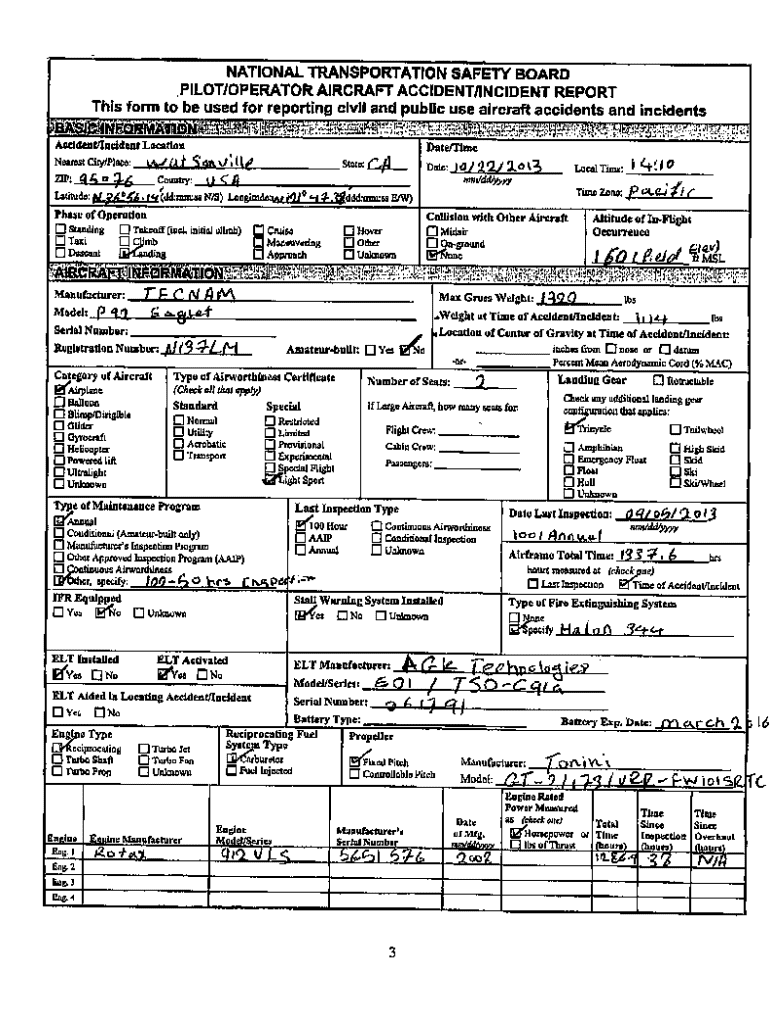 NATIONAL TRANSPORTATION SAFETY BOARD
PILOT/OPERATOR AIRCRAFT ACCIDENT/INCIDENT REPORT
This form to be used for reporting civil and public use aircraft accidents and incidents
BASIC INFORMATION
Accident/Incident Location
Nearest City/Place: Watsonville State: CA
ZIP: 95076 Country: USA
Latitude: (dd:mm:ss N/S) Longitude: (ddd:mm:ss E/W)
Date/Time
Date: 10/22/2013 Local Time: 14:10
mm/dd/yyyy
Time Zone: Pacific
Phase of Operation
Standing Takeoff (incl. initial climb) Cruise Hover
Taxi Climb Maneuvering Other
Descent Landing Approach Unknown
Collision with Other Aircraft
Midair
On-ground
None
Altitude of In-Flight
Occurrence
ft MSL
AIRCRAFT INFORMATION
Manufacturer: TECNAM
Model: P92 Eaglet
Serial Number:
Registration Number: N137LM Amateur-built: Yes No
Max Gross Weight: 1320 lbs
Weight at Time of Accident/Incident: 1114 lbs
Location of Center of Gravity at Time of Accident/Incident:
inches from nose or datum
-or- Percent Mean Aerodynamic Cord (% MAC)
Category of Aircraft
Airplane
Balloon
Blimp/Dirigible
Glider
Gyrocraft
Helicopter
Powered lift
Ultralight
Unknown
Type of Airworthiness Certificate
(Check all that apply)
Standard Special
Normal Restricted
Utility Limited
Acrobatic Provisional
Transport Experimental
Special Flight
Light Sport
Number of Seats: 2
If Large Aircraft, how many seats for:
Flight Crew:
Cabin Crew:
Passengers:
Landing Gear Retractable
Check any additional landing gear
configuration that applies:
Tricycle Tailwheel
Amphibian High Skid
Emergency Float Skid
Float Ski
Hull Ski/Wheel
Unknown
Type of Maintenance Program
Annual
Conditional (Amateur-built only)
Manufacturer's Inspection Program
Other Approved Inspection Program (AAIP)
Continuous Airworthiness
Other, specify: 100-50 hrs Inspection
Last Inspection Type
100 Hour Continuous Airworthiness
AAIP Conditional Inspection
Annual Unknown
Date Last Inspection: 09/05/2013
mm/dd/yyyy
100/ Annual
Airframe Total Time: 1337.6 hrs
hours measured at (check one)
Last Inspection Time of Accident/Incident
IFR Equipped
Yes No Unknown
Stall Warning System Installed
Yes No Unknown
Type of Fire Extinguishing System
None
Specify Halon 344
ELT Installed ELT Activated
Yes No Yes No
ELT Aided in Locating Accident/Incident
Yes No
ELT Manufacturer: ACK Technologies
Model/Series: E01 / TSO-C91a
Serial Number: 061791
Battery Type: Battery Exp. Date: March 2016
Engine Type
Reciprocating Turbo Jet
Turbo Shaft Turbo Fan
Turbo Prop Unknown
Reciprocating Fuel
System Type
Carburetor
Fuel Injected
Propeller
Fixed Pitch
Controllable Pitch
Manufacturer: Tonini
Model: GT-2/173/VRR-FW101SRTC
Engine Engine Manufacturer
Engine
Model/Series
Manufacturer's
Serial Number
Date
of Mfg.
mm/dd/yyyy
Engine Rated
Power Measured
as (check one)
Horsepower or
lbs of Thrust
Total
Time
(hours)
Time
Since
Inspection
(hours)
Time
Since
Overhaul
(hours)
Eng. 1 Rotax 912 ULS 5651576 2008 N/A
Eng. 2
Eng. 3
Eng. 4
3